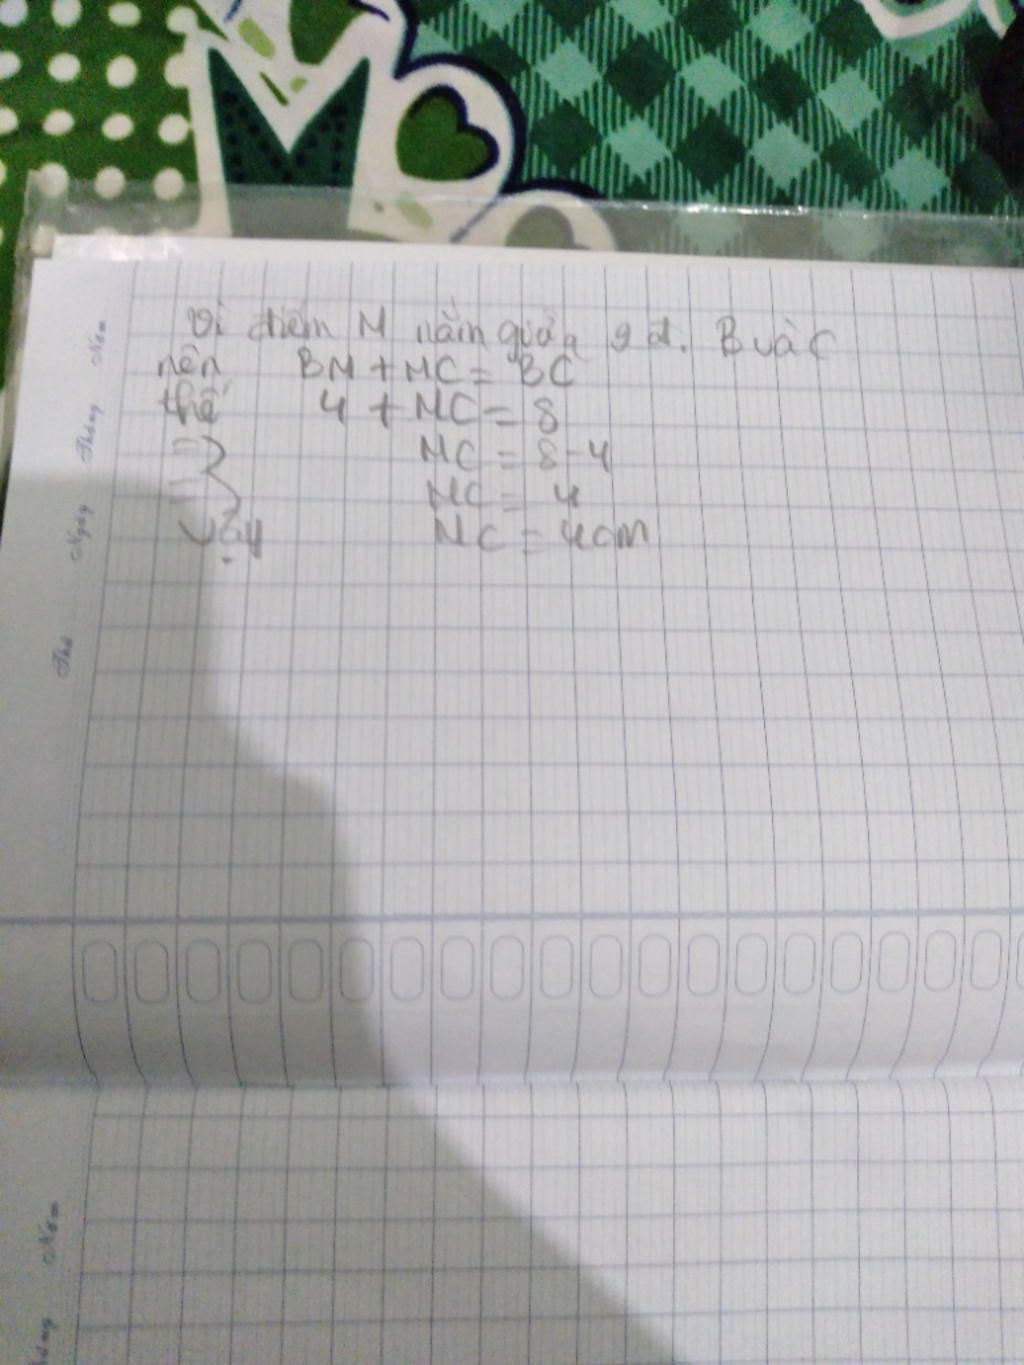 Vì điểm M nằm giữa 2 đ. B và C
nên BM + MC = BC
thế 4 + MC = 8
=> MC = 8 - 4
=> MC = 4
Vậy MC = 4cm
Năm
Tháng
Ngày
Thứ
Năm
Tháng